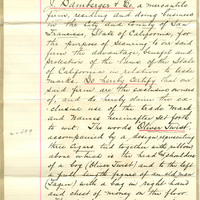 J. Bamberger & Co. a mercantile
firm, residing and doing business
in the City and County of San
Francisco, State of California, for
the purpose of securing to our said
firm the advantage, benefit and
protection of the Laws of the State
of California in relation to trade
marks. Do hereby Certify that our
said firm are the exclusive owners
of, and do hereby claim the ex-
clusive use of the trade mark
and names hereinafter set forth
to wit. The words "Oliver Twist",
accompanied by a design representing
three Cigars tied together with ribbons
above which is the head & shoulders
of a boy (Oliver Twist) and to the left
a full length figure of an old man
(Fagin) with a bag in right hand
and chest of money on the floor.